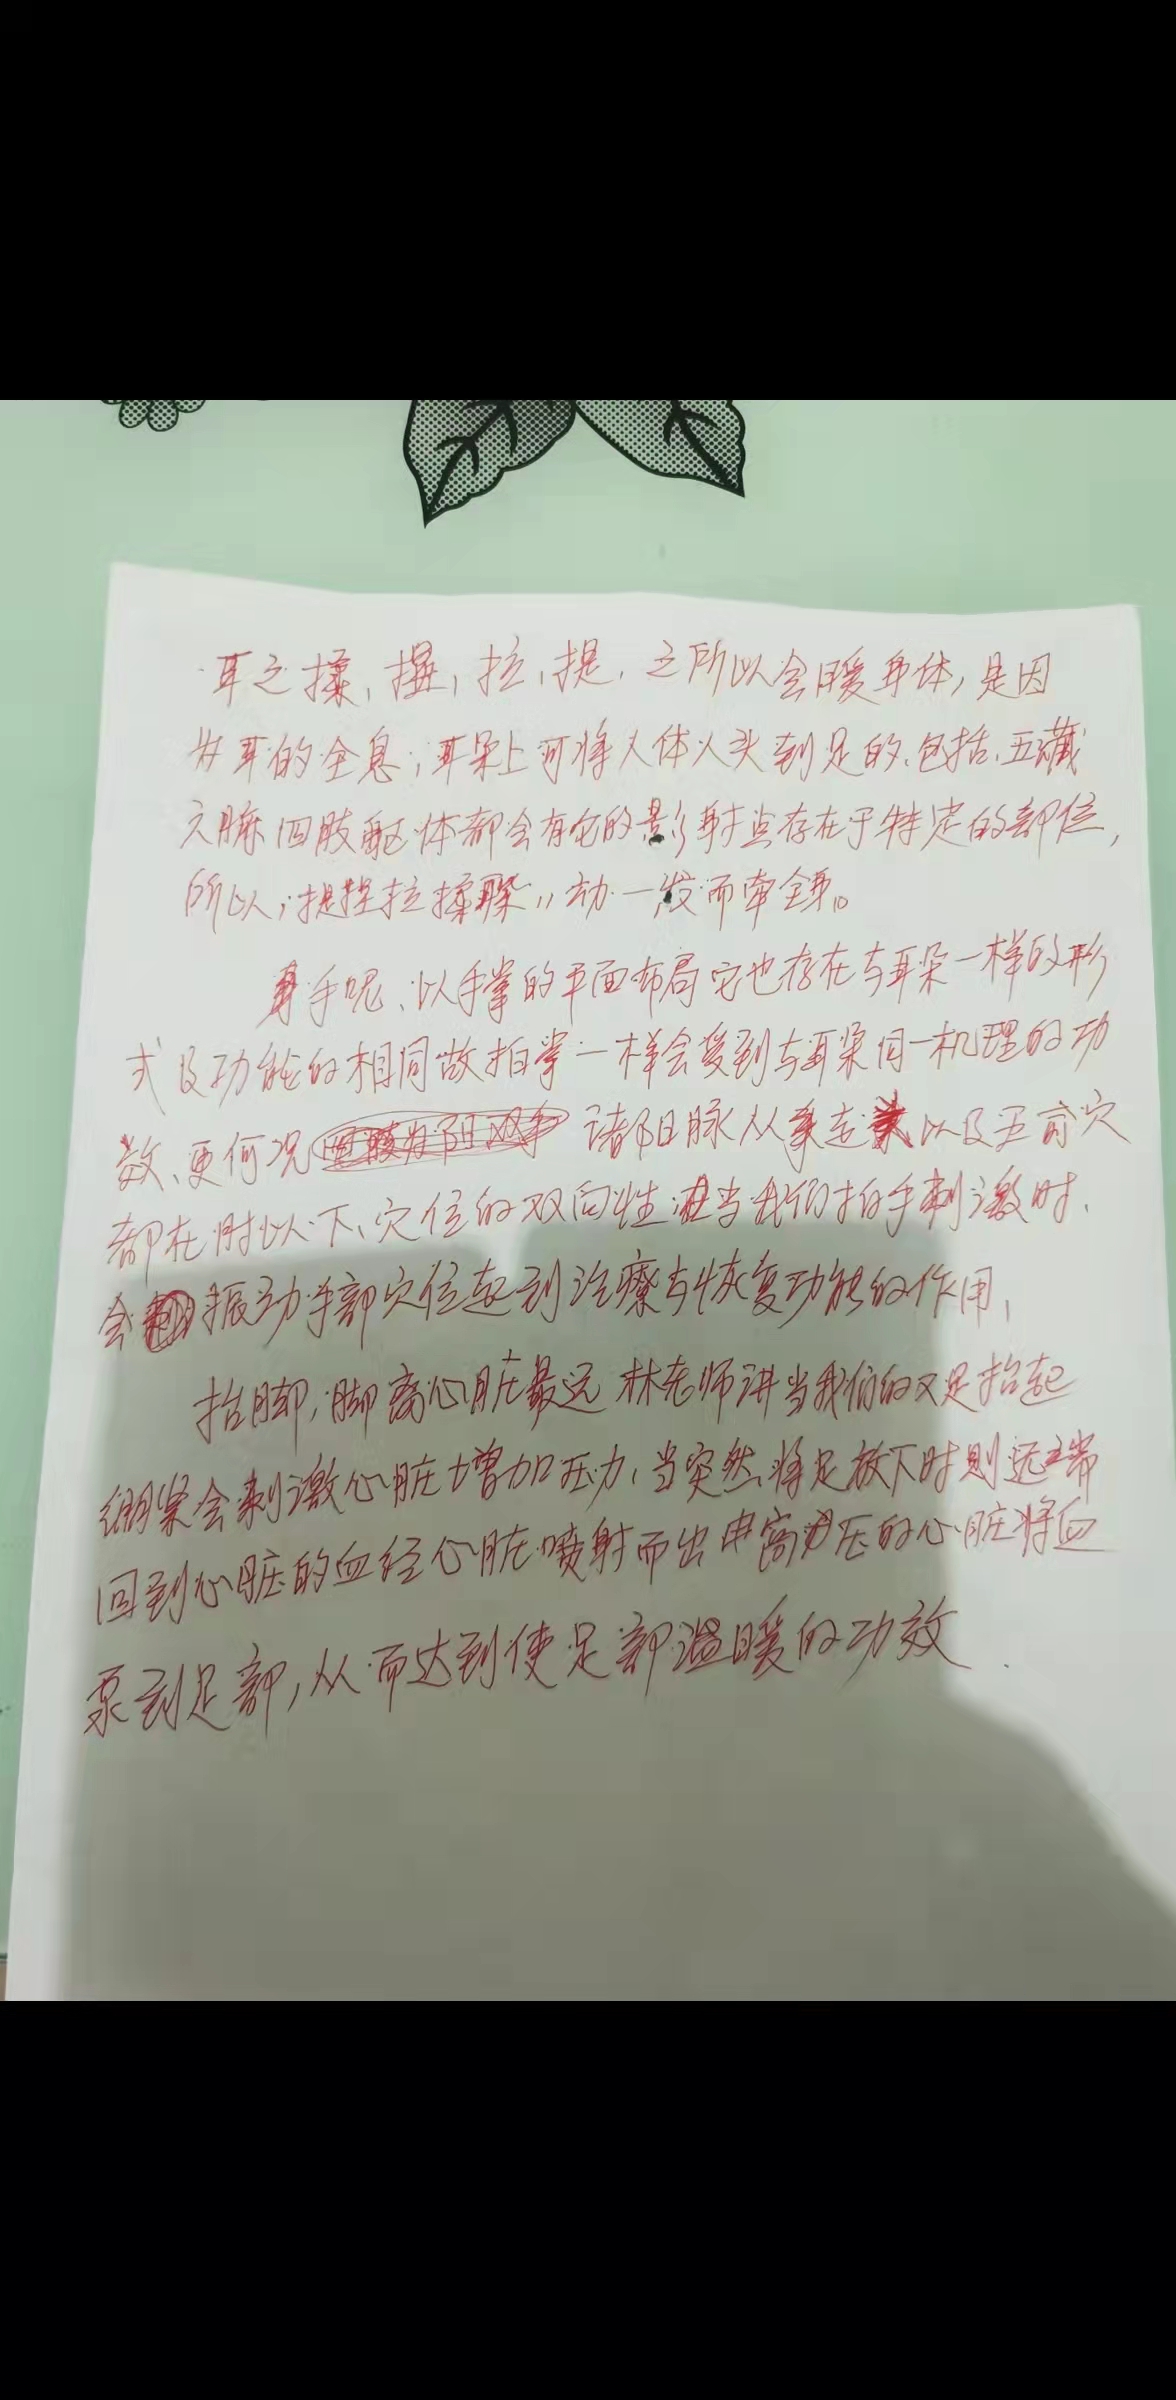 耳之揉,捏,拉,提,之所以会暖身体,是因
为耳的全息;耳朵上可将人体人头到足的、包括、五臟
六腑四肢躯体都会有它的影射点存在于特定的部位,
所以,提捏拉揉 动一发而牵全身。
手呢、以手掌的平面布局它也存在与耳朵一样的形
式及功能的相同故拍掌一样会受到与耳朵同一机理的功
效、更何况 诸阳脉从 走 以及五俞穴
都在肘以下、穴位的双向性 当我们拍手刺激时、
会 振动手部穴位起到治療与恢复功能的作用,
抬脚,脚离心脏最远 林老师讲当我们的双足抬起
绷紧会刺激心脏增加压力、当突然将足放下时则远端
回到心脏的血经心脏喷射而出由高压的心脏将血
泵到足部,从而达到使足部温暖的功效